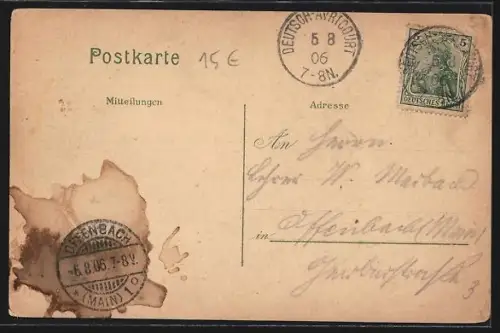 Postkarte
15€
DEUTSCH-AVRICOURT
5 8
06
7-8N.
5
DEUTSCHES REICH
Mitteilungen
Adresse
An Herrn
Lehrer W. Maibach
in Offenbach (Main)
3
OFFENBACH
-6.8.06.7-8V.
* (MAIN) 1 o